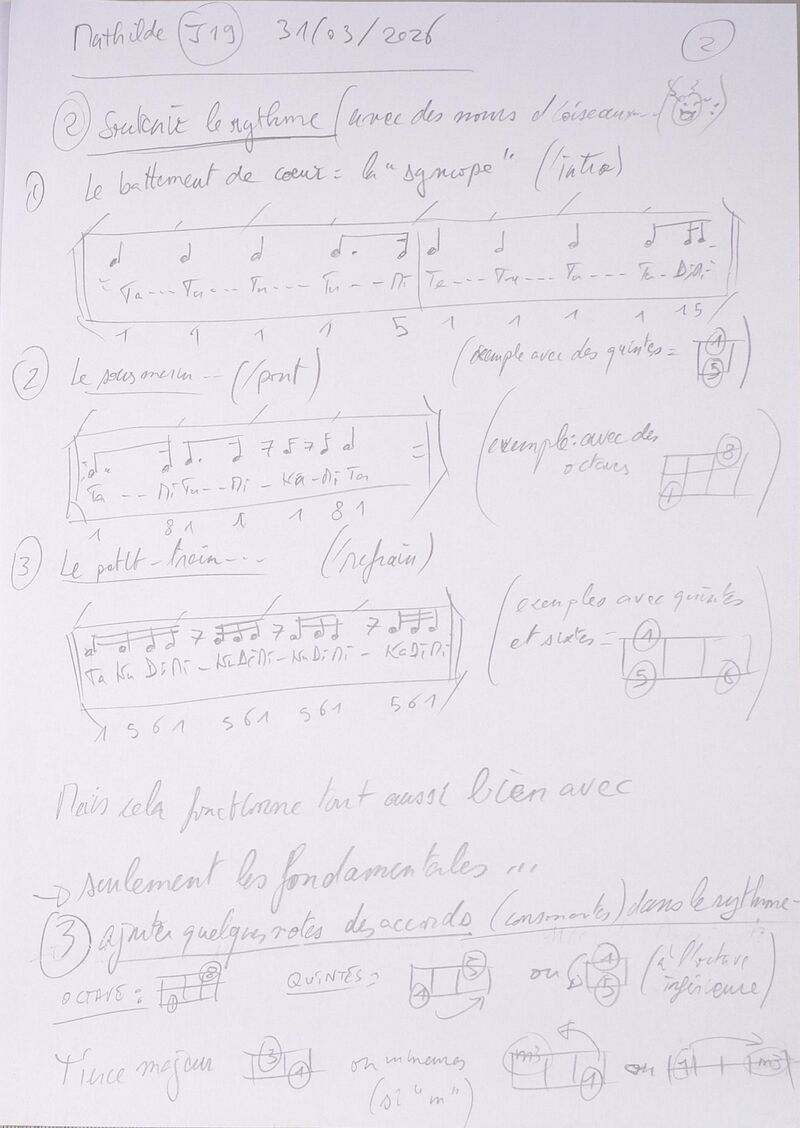 Mathilde J19 31/03/2026 2
② Soutenir le rythme (avec des noms d'oiseaux...
① Le battement de cœur = la "syncope" (l'intro)
Ta --- Ta --- Ta --- Ta -- Di Ta --- Ta --- Ta --- Ta - DiDi
1 1 1 1 5 1 1 1 1 15
② Le sous marin ... (/pont) (exemple avec des quintes = 1 5 )
Ta -- Di Ta -- Di - Ka - Di Ta
(exemple: avec des
octaves 8 1 )
1 8 1 1 1 8 1
③ Le petit-train ... (/refrain)
(exemples avec quintes
et sixtes = 1 5 6 )
Ta Ka Di Di - Ka Di Di - Ka Di Di - Ka Di Di
1 5 6 1 5 6 1 5 6 1 5 6 1
Mais cela fonctionne tout aussi bien avec
→ seulement les fondamentales ...
③ ajouter quelques notes des accords (consonantes) dans le rythme -
OCTAVE: 1 8 QUINTES: 1 5 ou 1 5 (à l'octave
inférieure)
Tierce majeur 3 1 ou mineures m3 1 ou 1 m3
(si "m")